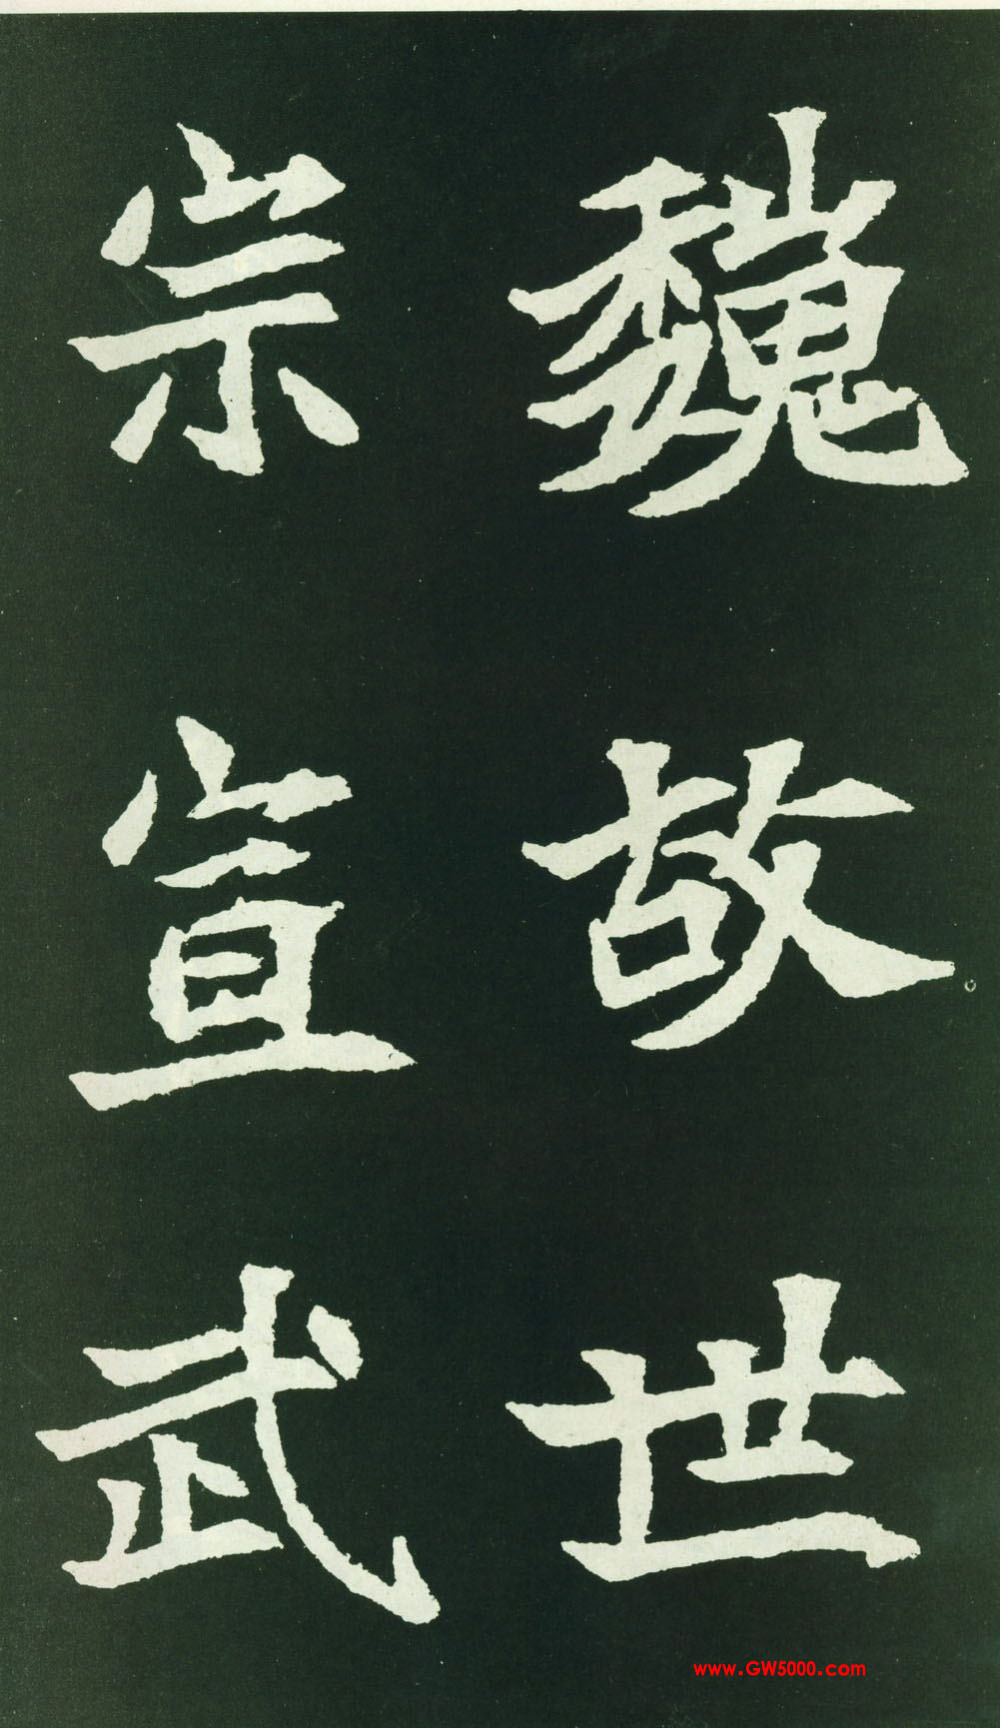 魏故世
宗宣武
www.GW5000.com